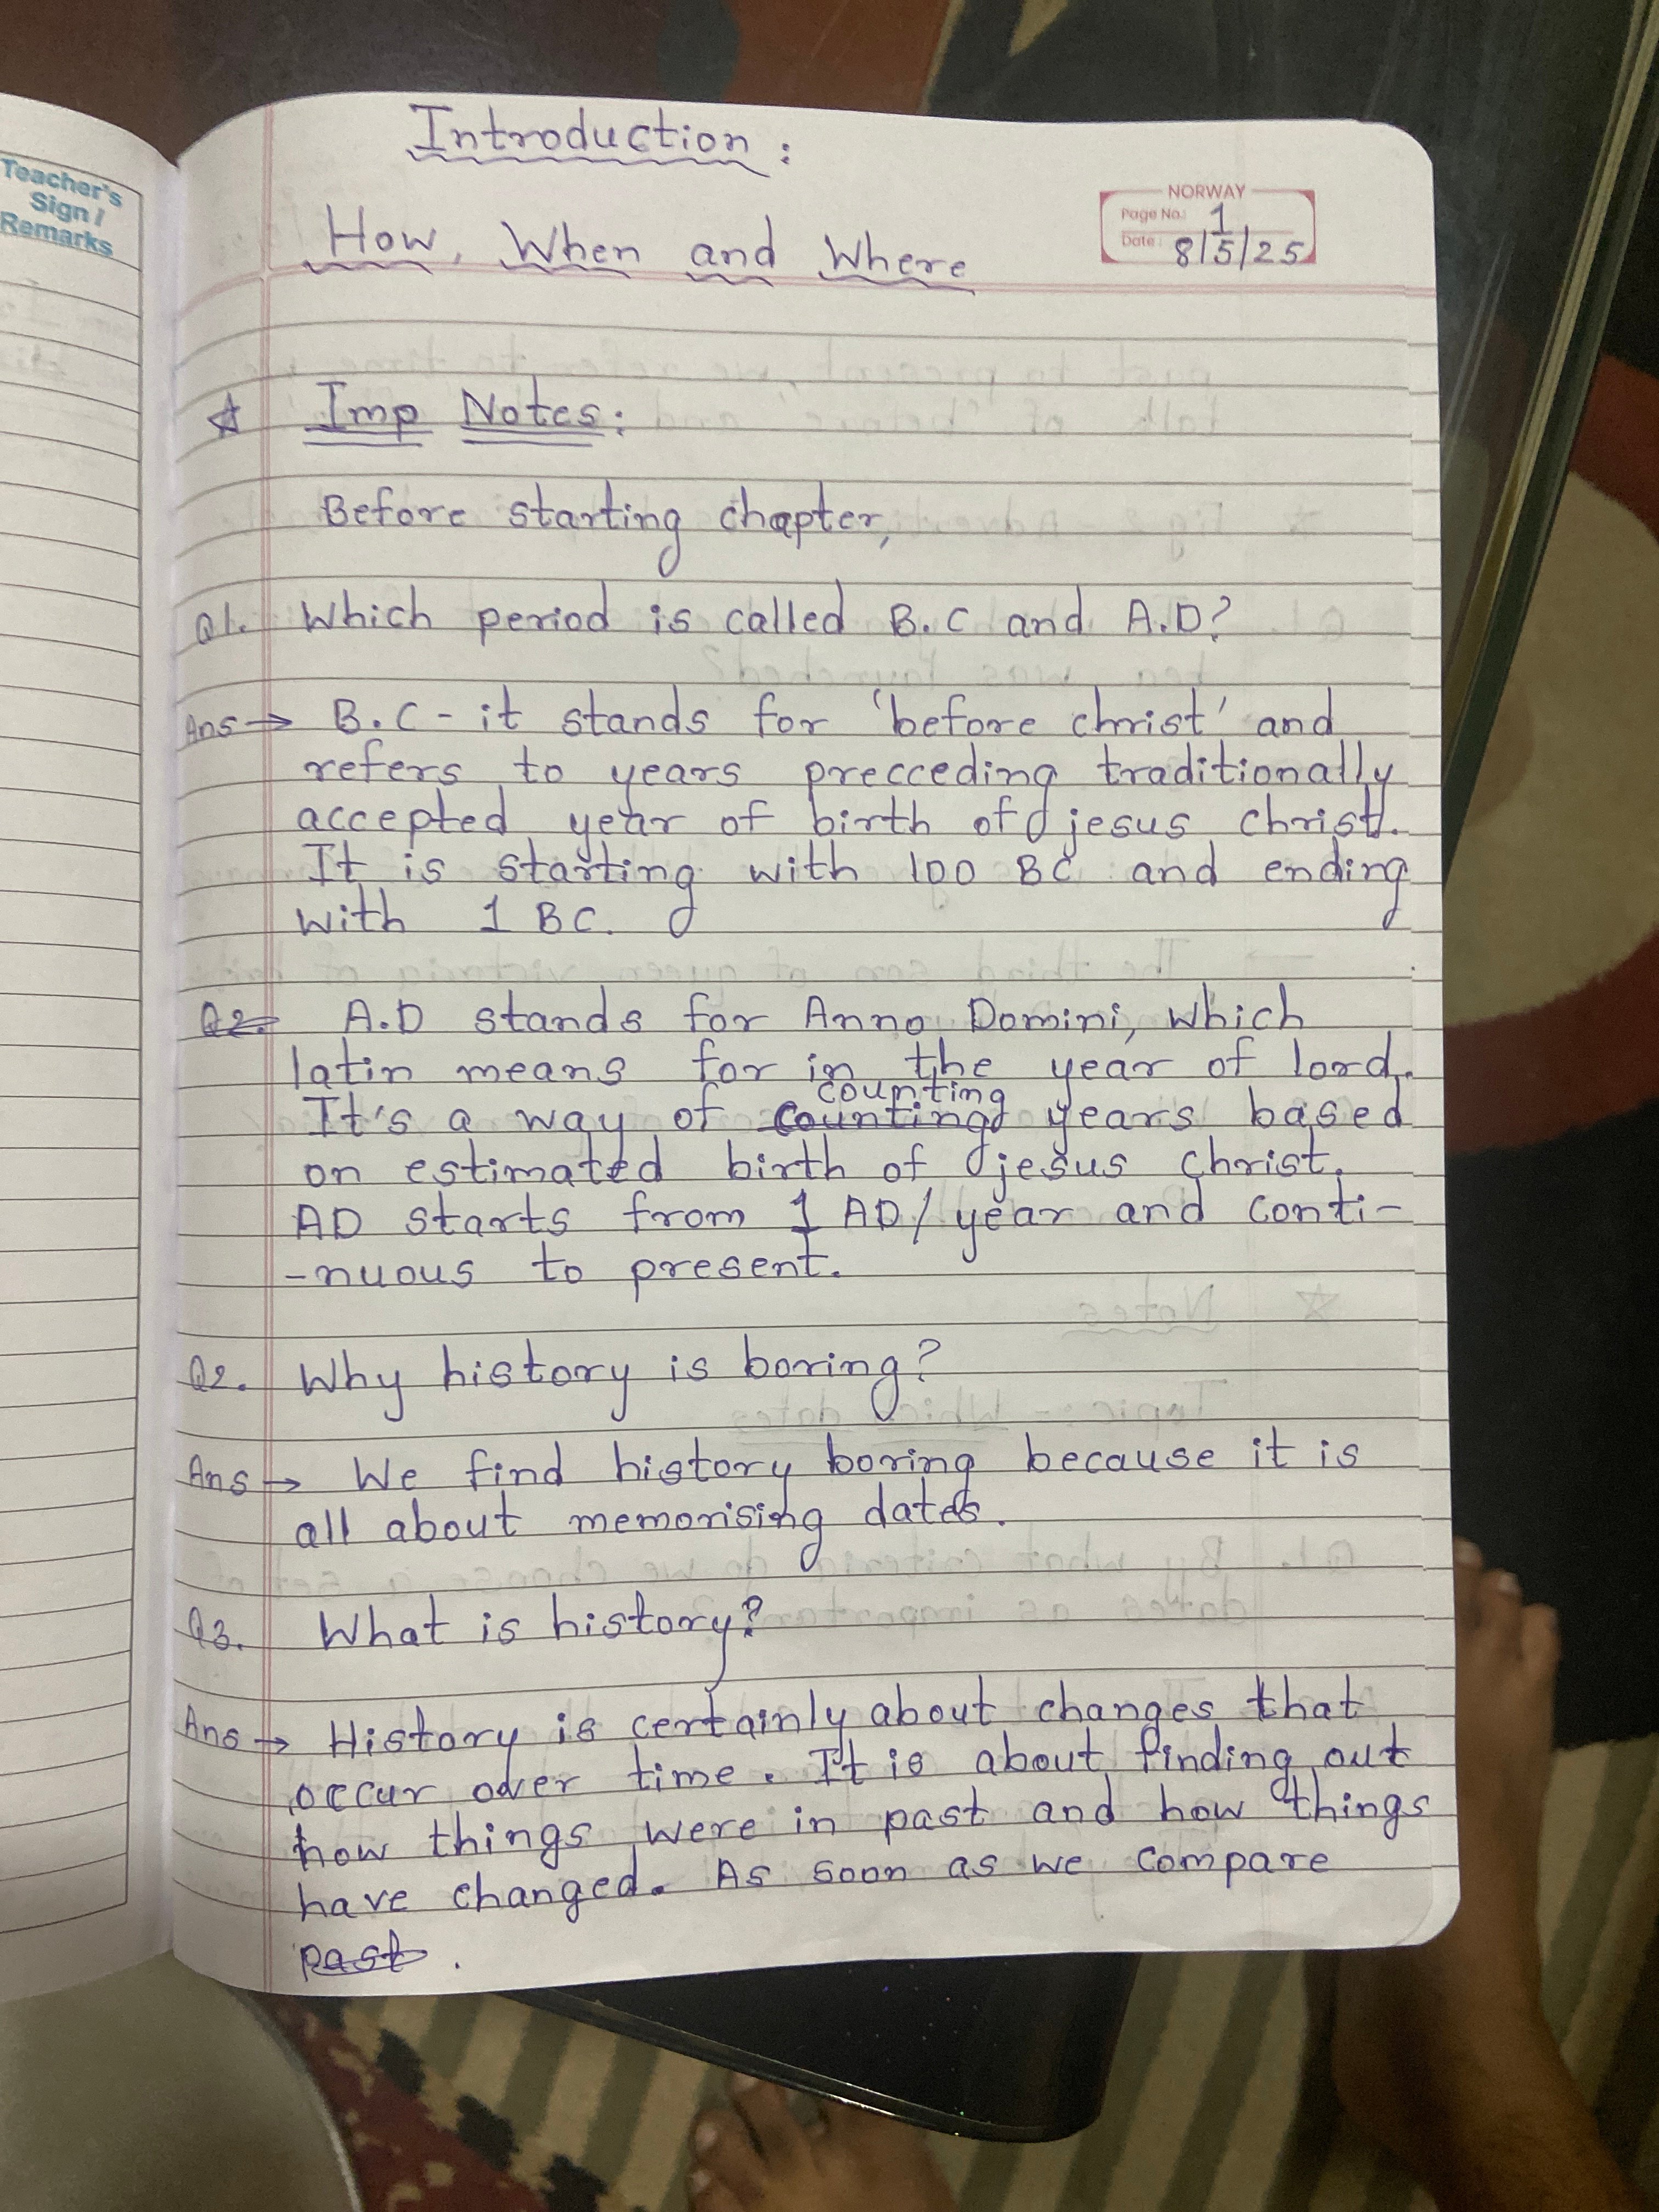 Teacher's
Sign /
Remarks
Introduction :
How, When and Where
NORWAY
Page No.: 1
Date: 8/5/25
☆ Imp Notes:
Before starting chapter,
Q1. Which period is called B.C and A.D?
Ans → B.C - it stands for 'before christ' and
refers to years precceding traditionally
accepted year of birth of jesus christ.
It is starting with 100 BC and ending
with 1 BC.
Q2. A.D stands for Anno Domini, which
latin means for in the year of lord.
counting
It's a way of counting years based
on estimated birth of jesus christ.
AD starts from 1 AD/year and conti-
-nuous to present.
Q2. Why history is boring?
Ans → We find history boring because it is
all about memorising dates.
Q3. What is history?
Ans → History is certainly about changes that
occur over time. It is about finding out
how things were in past and how things
have changed. As soon as we compare
past.